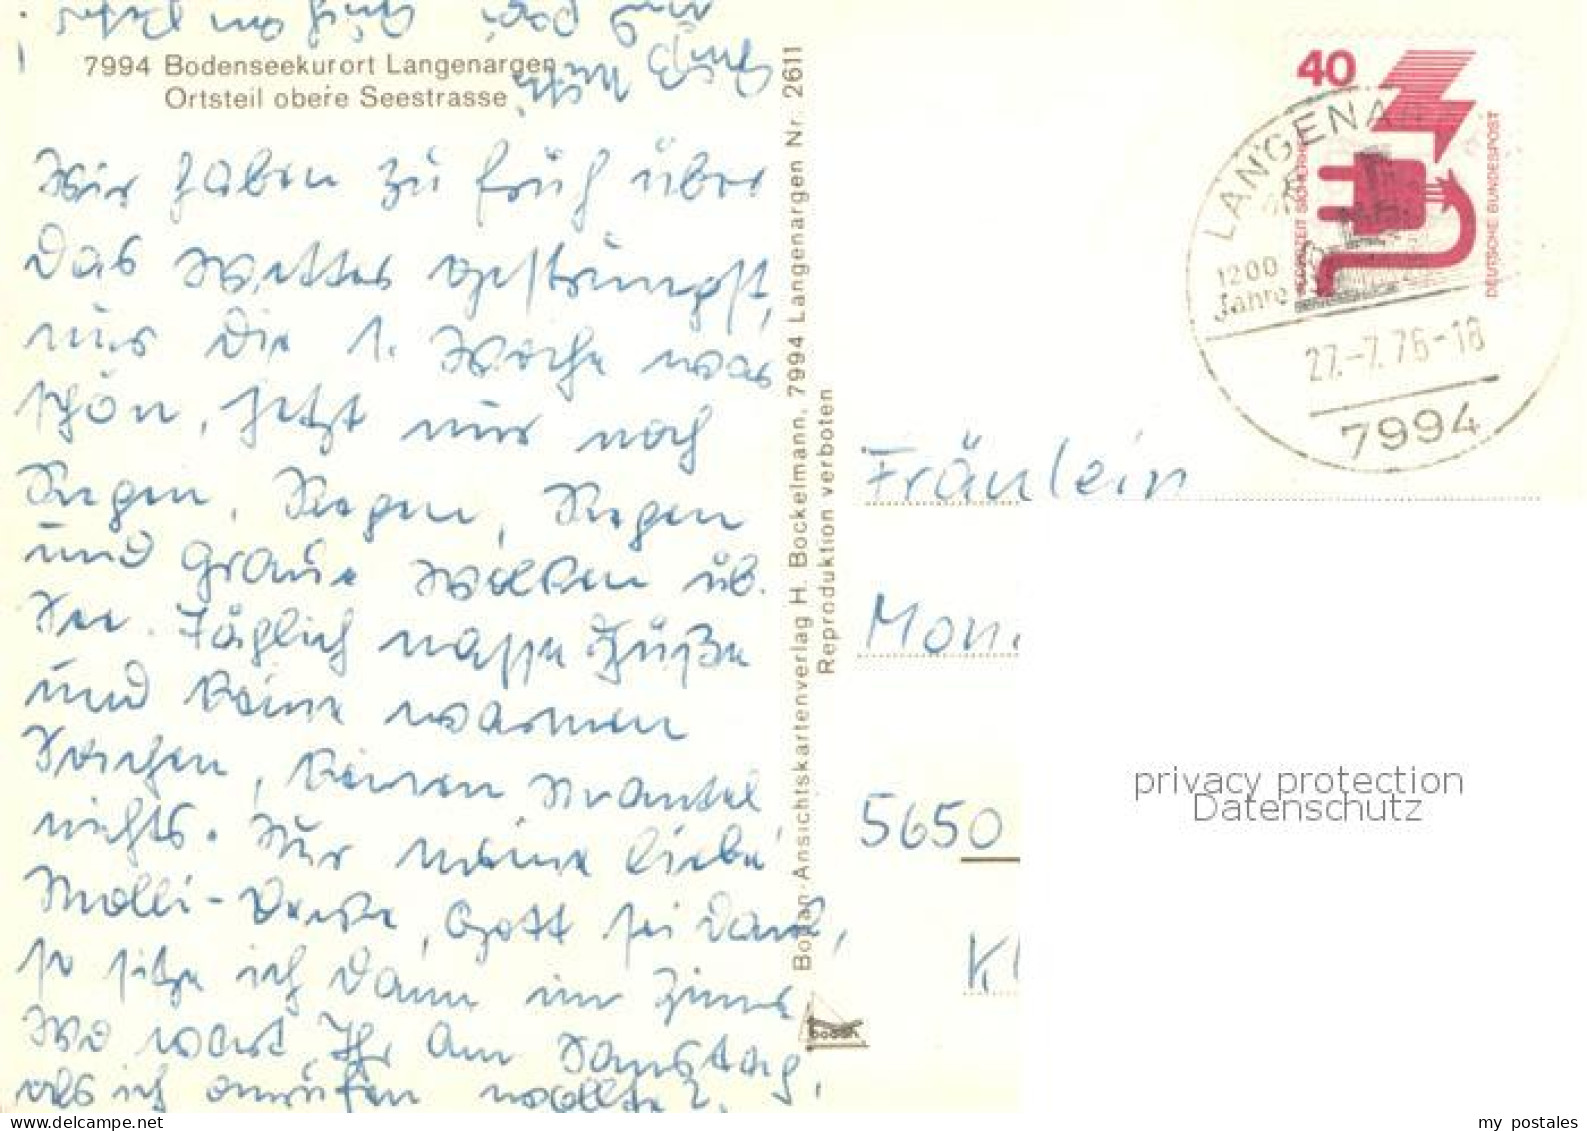 7994 Bodenseekurort Langenargen
Ortsteil obere Seestrasse
Wir haben zu früh über
das Wetter gestrumpft,
nur die 1. Woche war
schön, jetzt nur noch
Regen, Regen, Regen
und graue Wolken üb.
See. Täglich nasse Füße
und keine warmen
Sachen, keinen Mantel
nichts. Nur meine liebe
Molli-Decke, Gott sei Dank,
so sitze ich dann im Zimmer
Wo wart Ihr am Samstag,
als ich anrufen wollte?
Gruß Mutti
Bodan-Ansichtskartenverlag H. Bockelmann, 7994 Langenargen Nr. 2611
Reproduktion verboten
bodan
40
DEUTSCHE BUNDESPOST
JEDERZEIT SICHERHEIT
LANGENAR
1200
Jahre
27.-7.76-18
7994
Fräulein
Mon
5650
Kl
privacy protection
Datenschutz
my postales